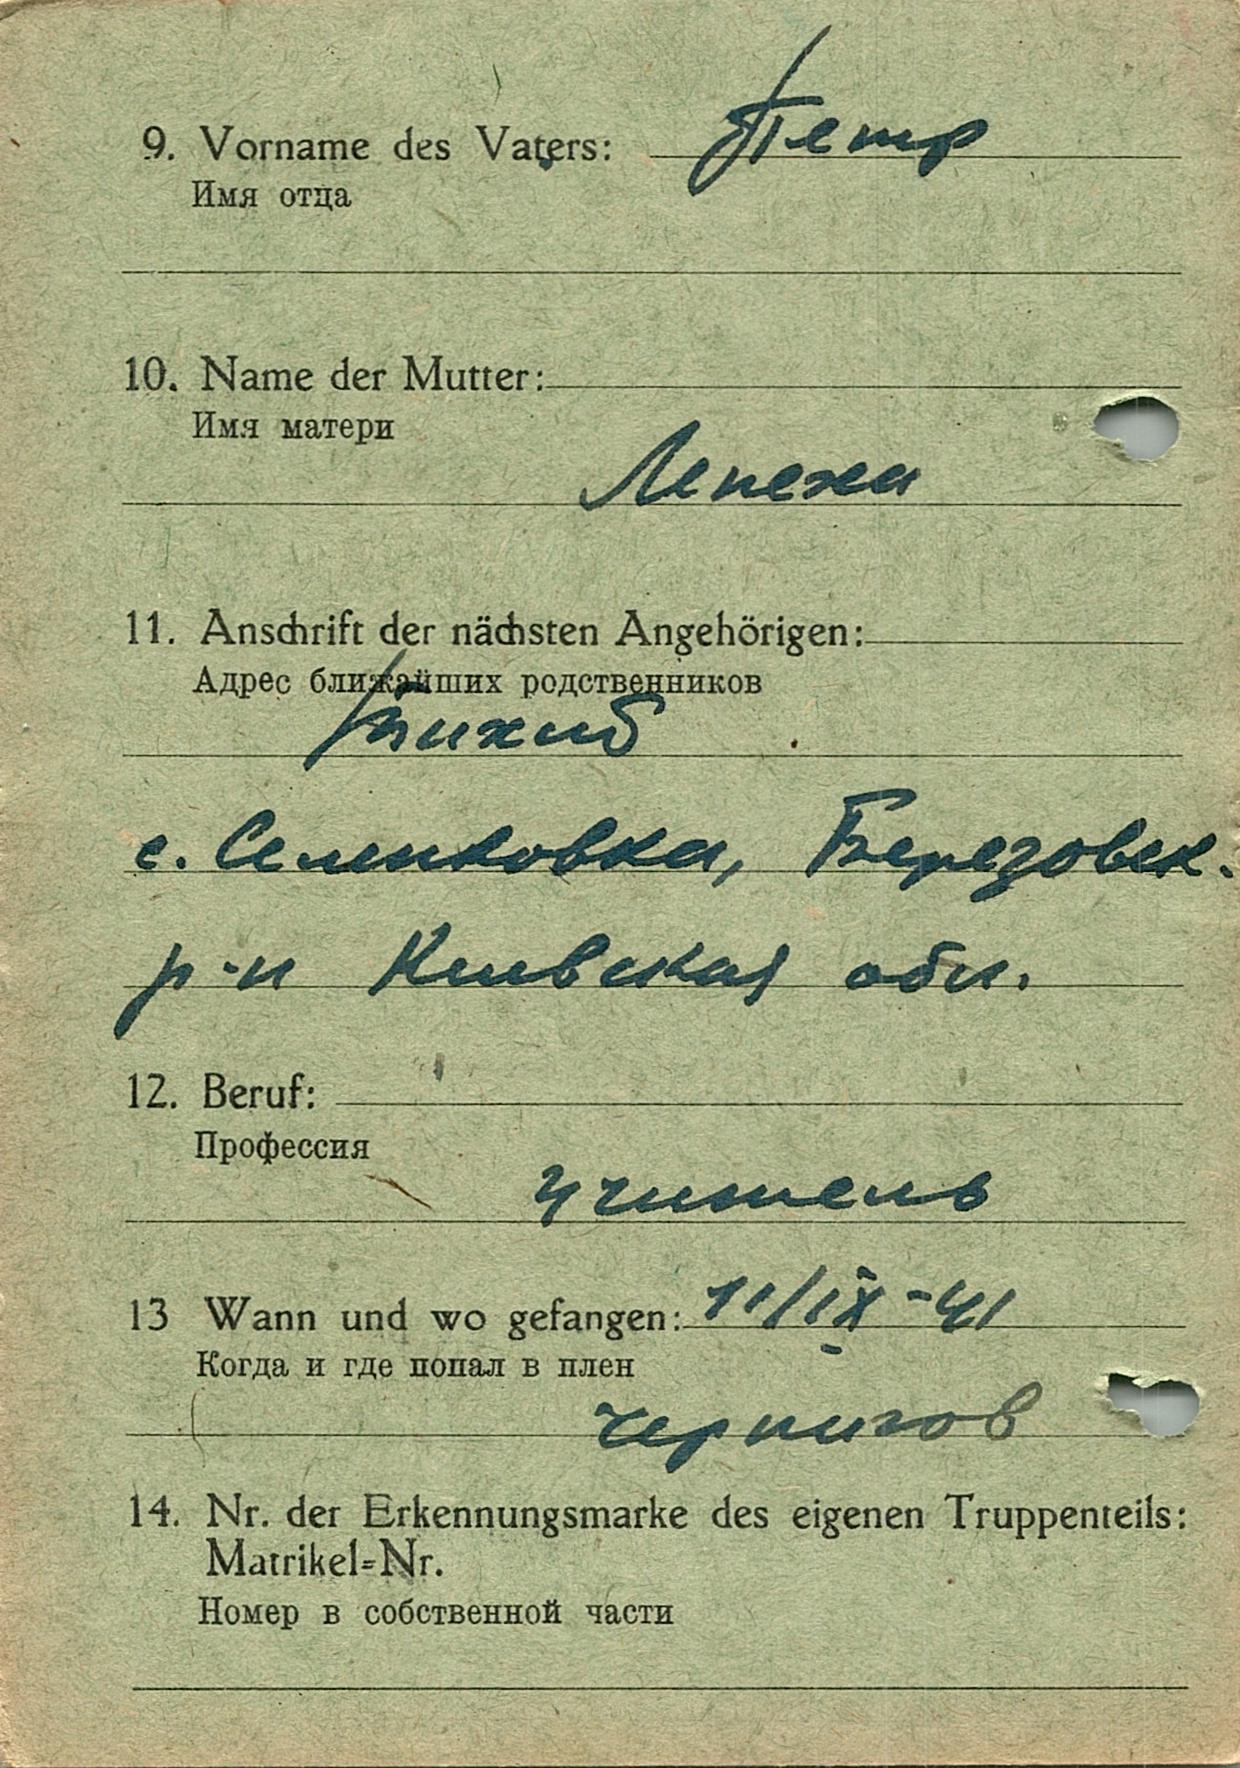 9. Vorname des Vaters: Петр
Имя отца
10. Name der Mutter:
Имя матери
Лепеха
11. Anschrift der nächsten Angehörigen:
Адрес ближайших родственников
Тихий
с. Селиковка, Березовск.
р-н Киевская обл.
12. Beruf:
Профессия
учитель
13 Wann und wo gefangen: 11/IX-41
Когда и где попал в плен
Чернигов
14. Nr. der Erkennungsmarke des eigenen Truppenteils:
Matrikel=Nr.
Номер в собственной части